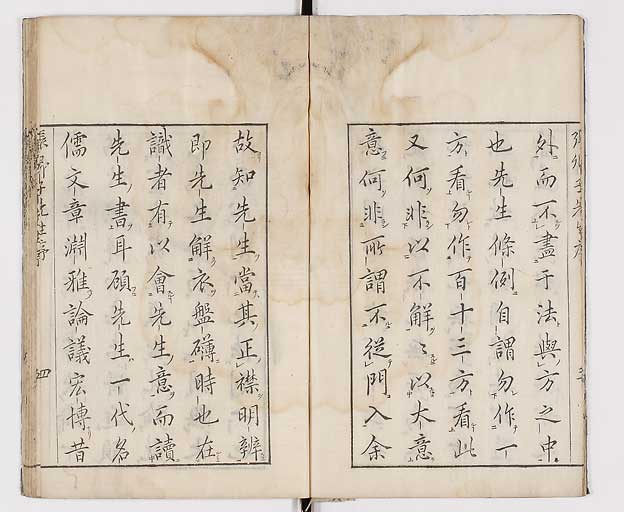 外而不盡于法與方之中
也先生條例自謂勿作一
方看勿作百十三方看此
又何非以不解〻以大意
意何非所謂不從門入余
故知先生當其正襟明辨
即先生解衣盤礴時也在
識者有以會先生意而讀
先生書耳碩先生一代名
儒文章淵雅論議宏博昔
張卿子先生序 四